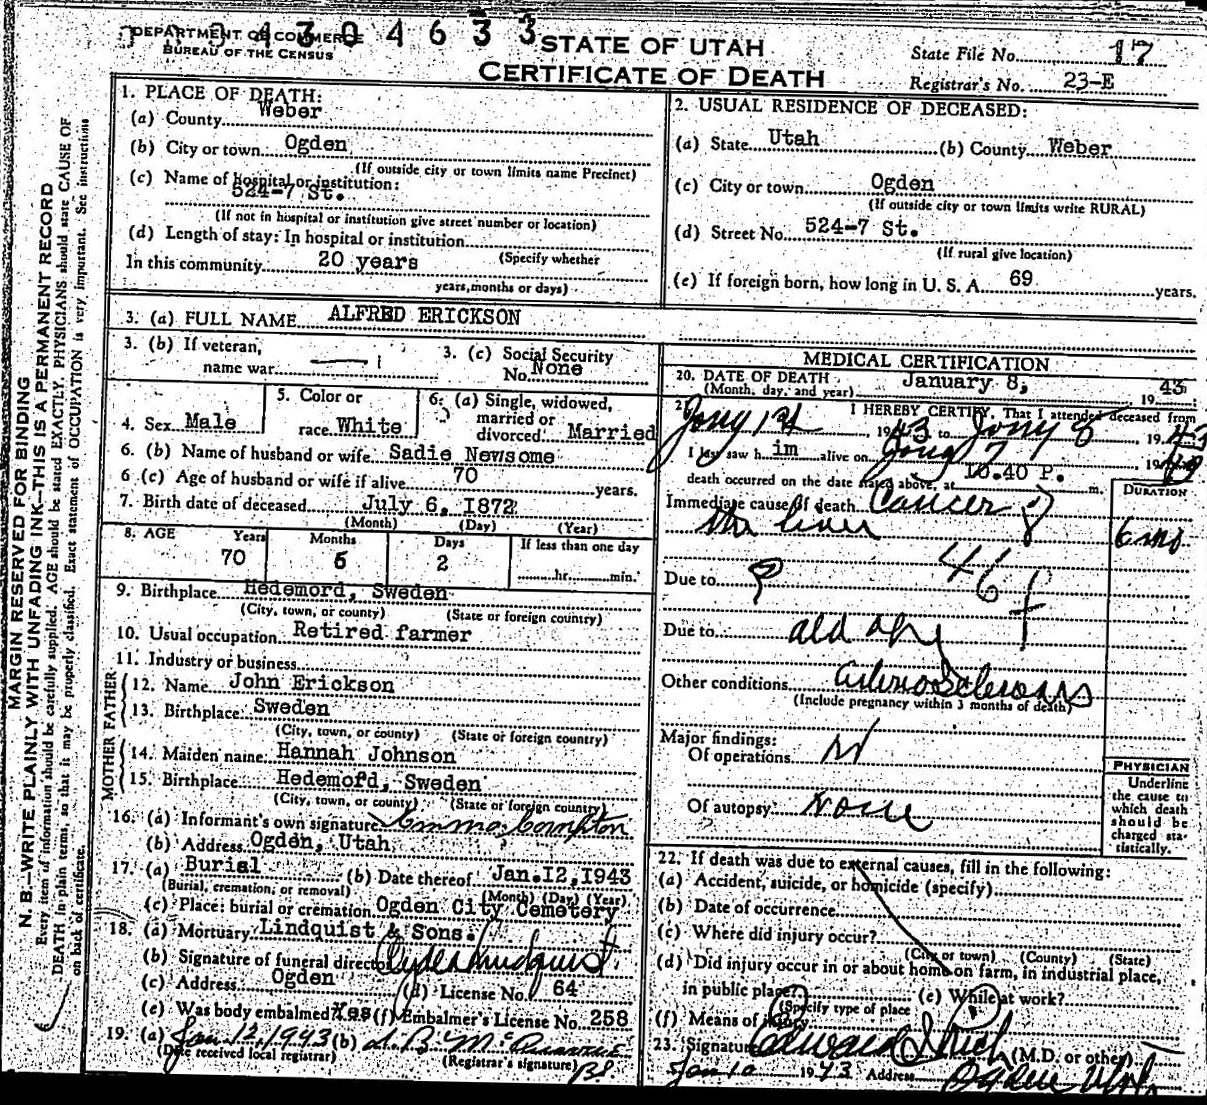 DEPARTMENT OF COMMERCE
BUREAU OF THE CENSUS
4 3 0 4 6 3 3
STATE OF UTAH
CERTIFICATE OF DEATH
State File No. 17
Registrar's No. 23-E
MARGIN RESERVED FOR BINDING
N. B.—WRITE PLAINLY WITH UNFADING INK—THIS IS A PERMANENT RECORD
Every item of information should be carefully supplied. AGE should be stated EXACTLY. PHYSICIANS should state CAUSE OF
DEATH in plain terms, so that it may be properly classified. Exact statement of OCCUPATION is very important. See instructions
on back of certificate.
1. PLACE OF DEATH:
(a) County Weber
(b) City or town Ogden
(If outside city or town limits name Precinct)
(c) Name of hospital or institution:
524-7 St.
(If not in hospital or institution give street number or location)
(d) Length of stay: In hospital or institution
(Specify whether
In this community 20 years
years, months or days)
2. USUAL RESIDENCE OF DECEASED:
(a) State Utah (b) County Weber
(c) City or town Ogden
(If outside city or town limits write RURAL)
(d) Street No. 524-7 St.
(If rural give location)
(e) If foreign born, how long in U. S. A. 69 years.
3. (a) FULL NAME ALFRED ERICKSON
3. (b) If veteran,
name war
3. (c) Social Security
No. None
4. Sex Male
5. Color or
race White
6. (a) Single, widowed,
married or
divorced Married
6. (b) Name of husband or wife Sadie Newsome
6 (c) Age of husband or wife if alive 70 years.
7. Birth date of deceased July 6, 1872
(Month) (Day) (Year)
8. AGE Years Months Days If less than one day
70 6 2 hr. min.
9. Birthplace Hedemord, Sweden
(City, town, or county) (State or foreign country)
10. Usual occupation Retired farmer
11. Industry or business
FATHER
12. Name John Erickson
13. Birthplace Sweden
(City, town, or county) (State or foreign country)
MOTHER
14. Maiden name Hannah Johnson
15. Birthplace Hedemord, Sweden
(City, town, or county) (State or foreign country)
16. (a) Informant's own signature Emma Compton
(b) Address Ogden, Utah
17. (a) Burial (b) Date thereof Jan. 12, 1943
(Burial, cremation, or removal) (Month) (Day) (Year)
(c) Place: burial or cremation Ogden City Cemetery
18. (a) Mortuary Lindquist & Sons.
(b) Signature of funeral director Clyde Lindquist
(c) Address Ogden (d) License No. 64
(e) Was body embalmed Yes (f) Embalmer's License No. 258
19. (a) Jan. 12, 1943 (b)
(Date received local registrar) (Registrar's signature)
MEDICAL CERTIFICATION
20. DATE OF DEATH January 8, 1943
(Month, day, and year)
I HEREBY CERTIFY, That I attended deceased from
Jany 1st, 1943 to Jany 8, 1943
I last saw him alive on Jany 7, 1943
death occurred on the date stated above, at 10.40 P. m.
DURATION
Immediate cause of death Cancer of
the liver 6 mo
46 f
Due to
Due to old age
Other conditions arteriosclerosis
(Include pregnancy within 3 months of death)
Major findings:
Of operations
Of autopsy None
PHYSICIAN
Underline
the cause to
which death
should be
charged sta-
tistically.
22. If death was due to external causes, fill in the following:
(a) Accident, suicide, or homicide (specify)
(b) Date of occurrence
(c) Where did injury occur?
(City or town) (County) (State)
(d) Did injury occur in or about home on farm, in industrial place,
in public place? (e) While at work?
(Specify type of place
(f) Means of injury
23. Signature Edward (M.D. or other)
Jan 10 1943 Address Ogden Utah